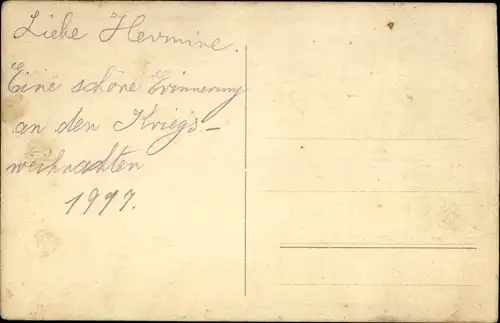 Liebe Hermine.
Eine schöne Erinnerung
an den Kriegs-
weihnachten
1917.